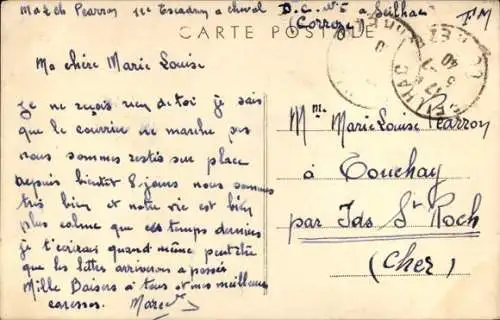 Ma ch Pearron 11e Escadron à cheval D.C. n°5 à Seilhac
(Corrèze)
FM
CARTE POSTALE
Ma chère Marie Louise
Je ne reçois rien de toi je sais
que le courrier ne marche pas
nous sommes restés sur place
depuis bientôt 8 jours nous sommes
très bien et notre vie est bien
plus calme que ces temps derniers
je t'écrirai quand même peut être
que les lettres arriverons a passés
Mille Baisers à tous et mes meilleures
caresses. Marcel
SEILHAC
CORREZE
17
5-7
40
Mme Marie Louise Pearron
à Touchay
par Ids St Roch
(Cher)